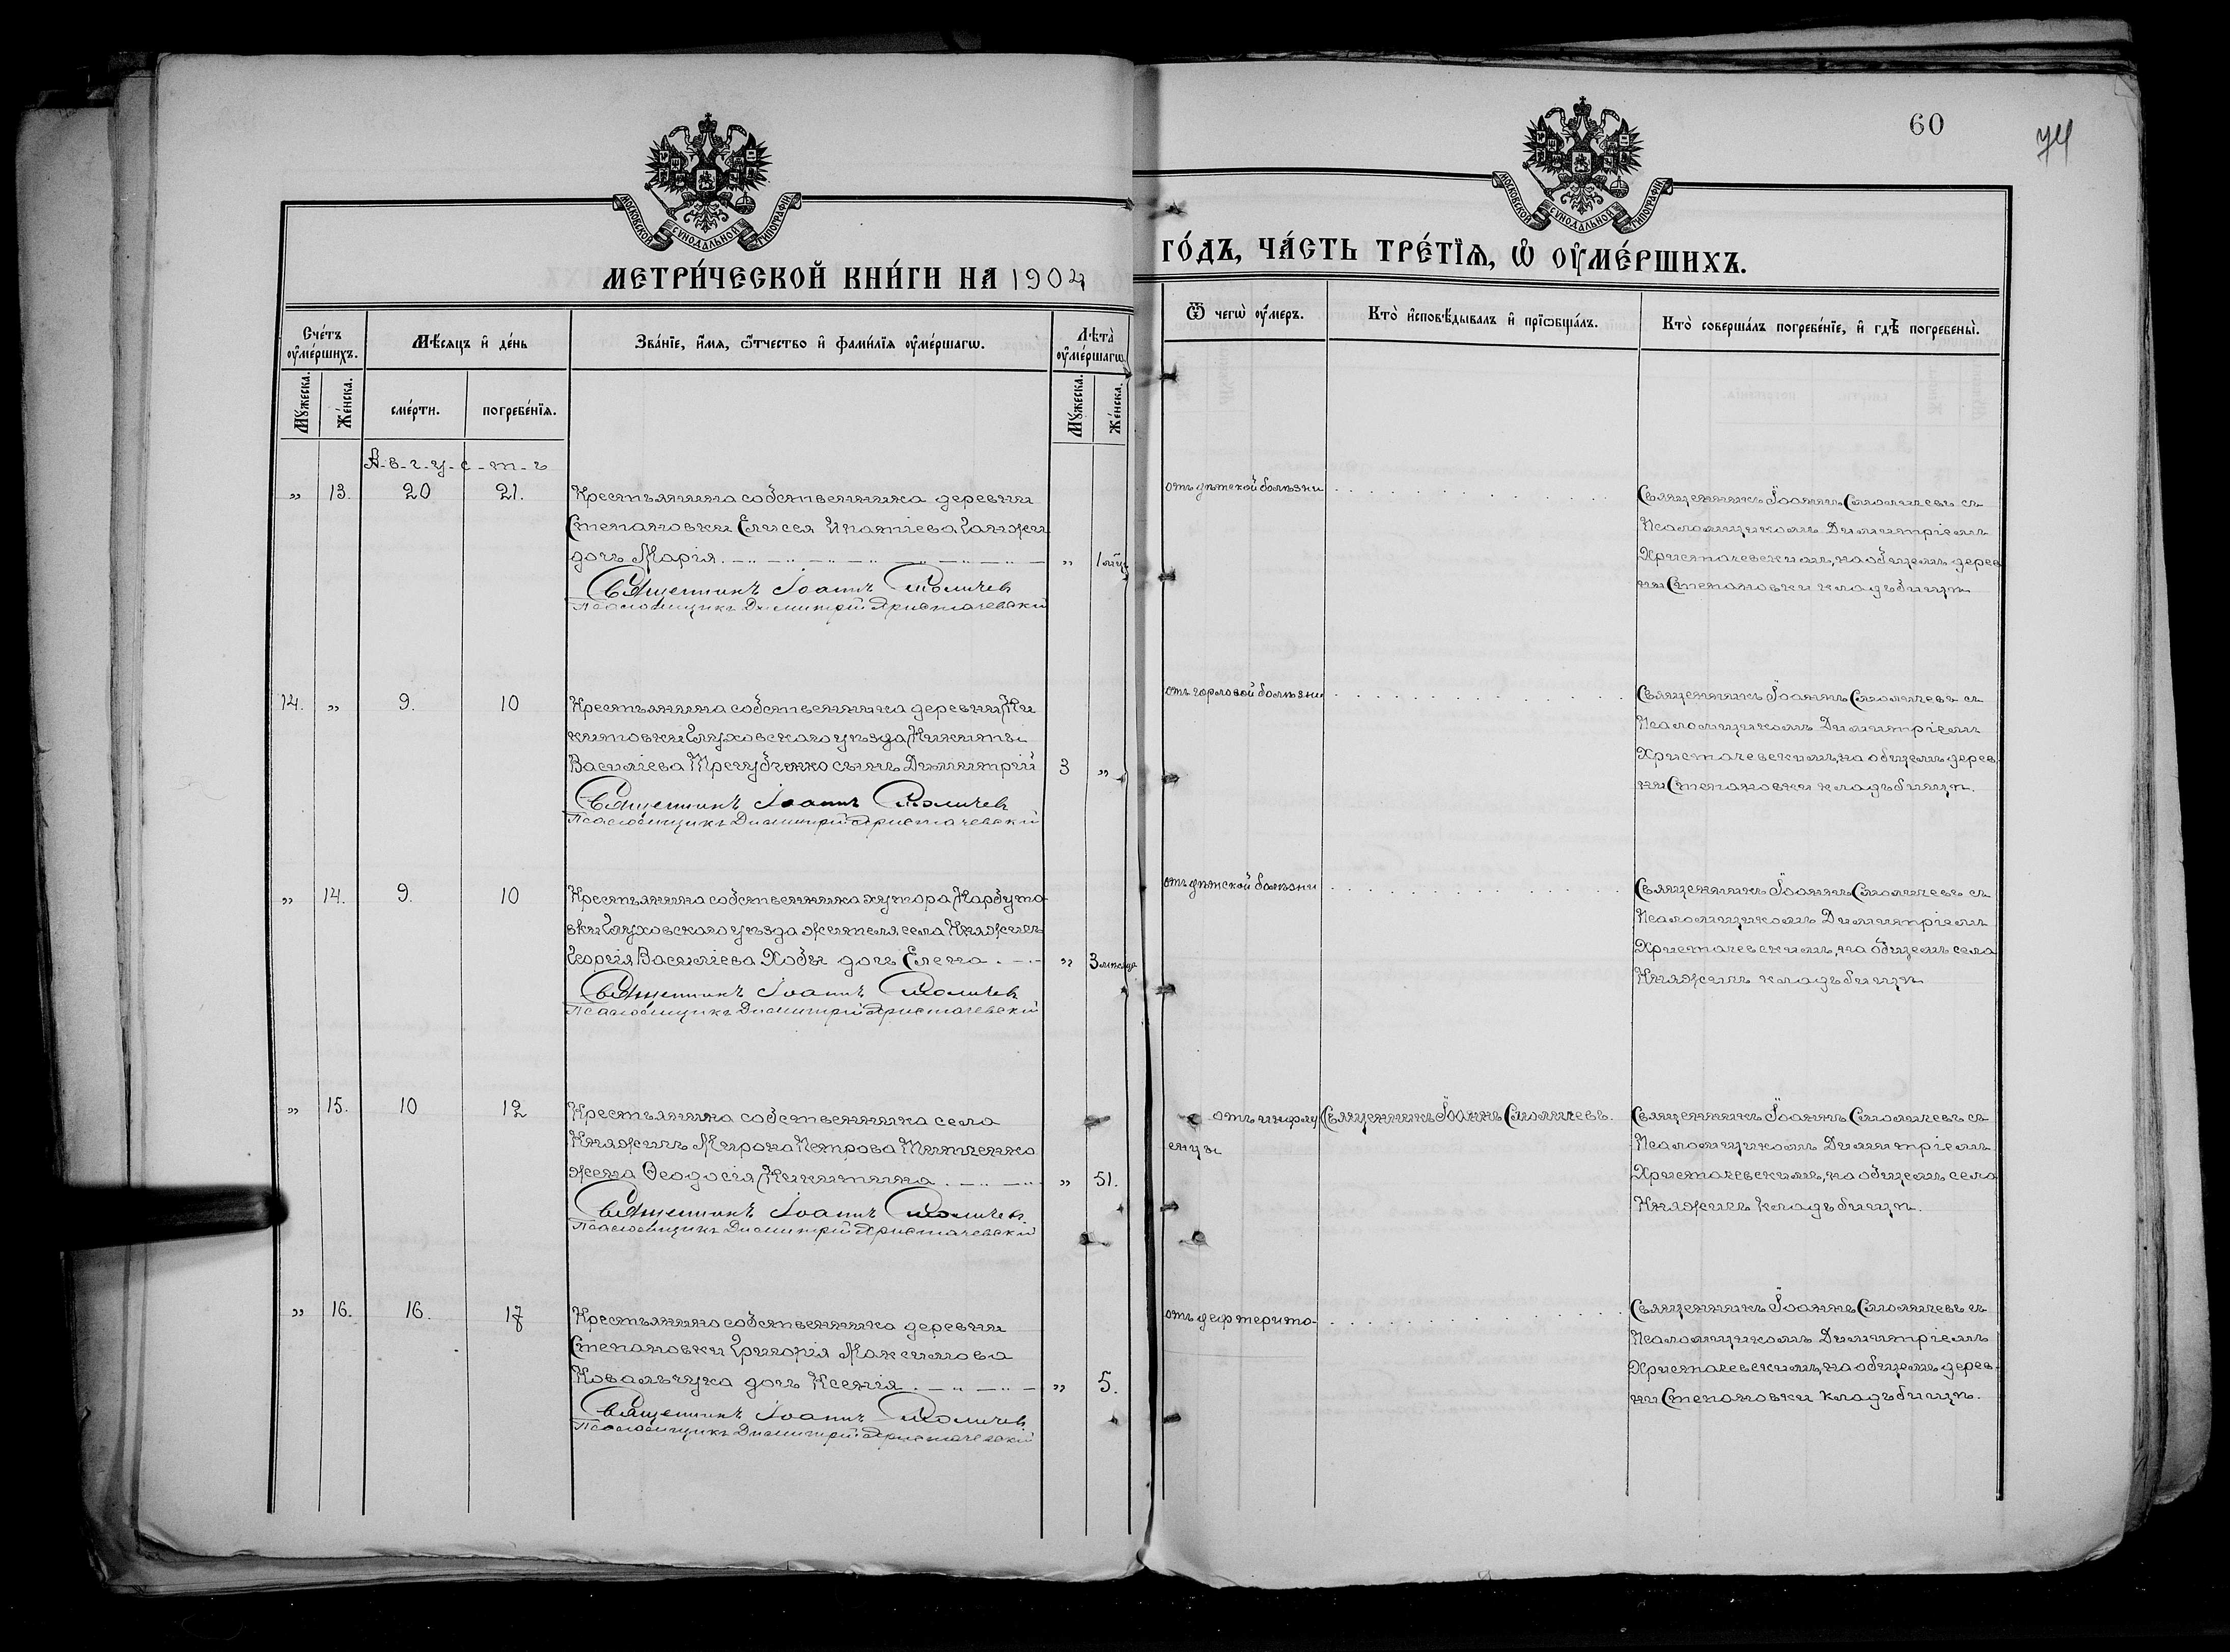 60
74
МОСКОВСКОЙ СѴНОДАЛЬНОЙ ТИПОГРАФІИ
МОСКОВСКОЙ СѴНОДАЛЬНОЙ ТИПОГРАФІИ
МЕТРИ́ЧЕСКОЙ КНИ́ГИ НА 1904 ГО́ДЪ, ЧА́СТЬ ТРЕ́ТЇѦ, Ѡ҆ ОУ҆МЕ́РШИХЪ.
Сче́тъ оу҆ме́ршихъ.
Мѣ́сяцъ и҆ де́нь
Зва́нїе, и҆́мя, ѻ҆́тчество и҆ фами́лїя оу҆ме́ршагѡ.
Лѣ́та оу҆ме́ршагѡ.
Ѿ чегѡ̀ оу҆́меръ.
Кто̀ и҆сповѣ́дывалъ и҆ прїѡбща́лъ.
Кто̀ соверша́лъ погребе́нїе, и҆ гдѣ̀ погребены̀.
Му́жеска.
Же́нска.
сме́рти.
погребе́нїя.
Му́жеска.
Же́нска.
А-в-г-у-с-т-ъ
„ 13. 20 21.
Крестьянина собственника деревни
Степановки Елисея Ипатіева Ганжи
дочь Марія. „
Священникъ Іоаннъ Смоличев
Псаломщикъ Димитрій Христачевскій
отъ дѣтской болѣзни
Священникъ Іоаннъ Смоличевъ съ
Псаломщикомъ Димитріемъ
Христачевскимъ, на общемъ дерев
ни Степановки кладбищѣ
14. „ 9. 10
Крестьянина собственника деревни Ни
китовки Глуховского уѣзда Никиты
Василіева Трегубенко сынъ Димитрій 3 „
Священникъ Іоаннъ Смоличев
Псаломщикъ Димитрій Христачевскій
отъ горловой болѣзни
Священникъ Іоаннъ Смоличевъ съ
Псаломщикомъ Димитріемъ
Христачевскимъ, на общемъ дерев
ни Степановки кладбищѣ.
„ 14. 9. 10
Крестьянина собственника хутора Нарбуто-
вки Глуховского уѣзда жителя села Княжичъ
Георгія Василіева Хобы дочь Елена. „ 3 мѣсяца
Священникъ Іоаннъ Смоличев
Псаломщикъ Димитрій Христачевскій
отъ дѣтской болѣзни
Священникъ Іоаннъ Смоличевъ съ
Псаломщикомъ Димитріемъ
Христачевскимъ, на общемъ села
Княжичъ кладбищѣ
„ 15. 10 12
Крестьянина собственника села
Княжичъ Мирона Петрова Тютченко
жена Ѳеодосія Никитина. „ 51.
Священникъ Іоаннъ Смоличев
Псаломщикъ Димитрій Христачевскій
отъ инфлу
енцы
Священникъ Іоаннъ Смоличевъ.
Священникъ Іоаннъ Смоличевъ съ
Псаломщикомъ Димитріемъ
Христачевскимъ, на общемъ села
Княжичъ кладбищѣ.
„ 16. 16. 17
Крестьянина собственника деревни
Степановки Григорія Максимова
Ковальчука дочь Ксенія. „ 5.
Священникъ Іоаннъ Смоличев
Псаломщикъ Димитрій Христачевскій
отъ дефтерита
Священникъ Іоаннъ Смоличевъ съ
Псаломщикомъ Димитріемъ
Христачевскимъ, на общемъ дерев
ни Степановки кладбищѣ.